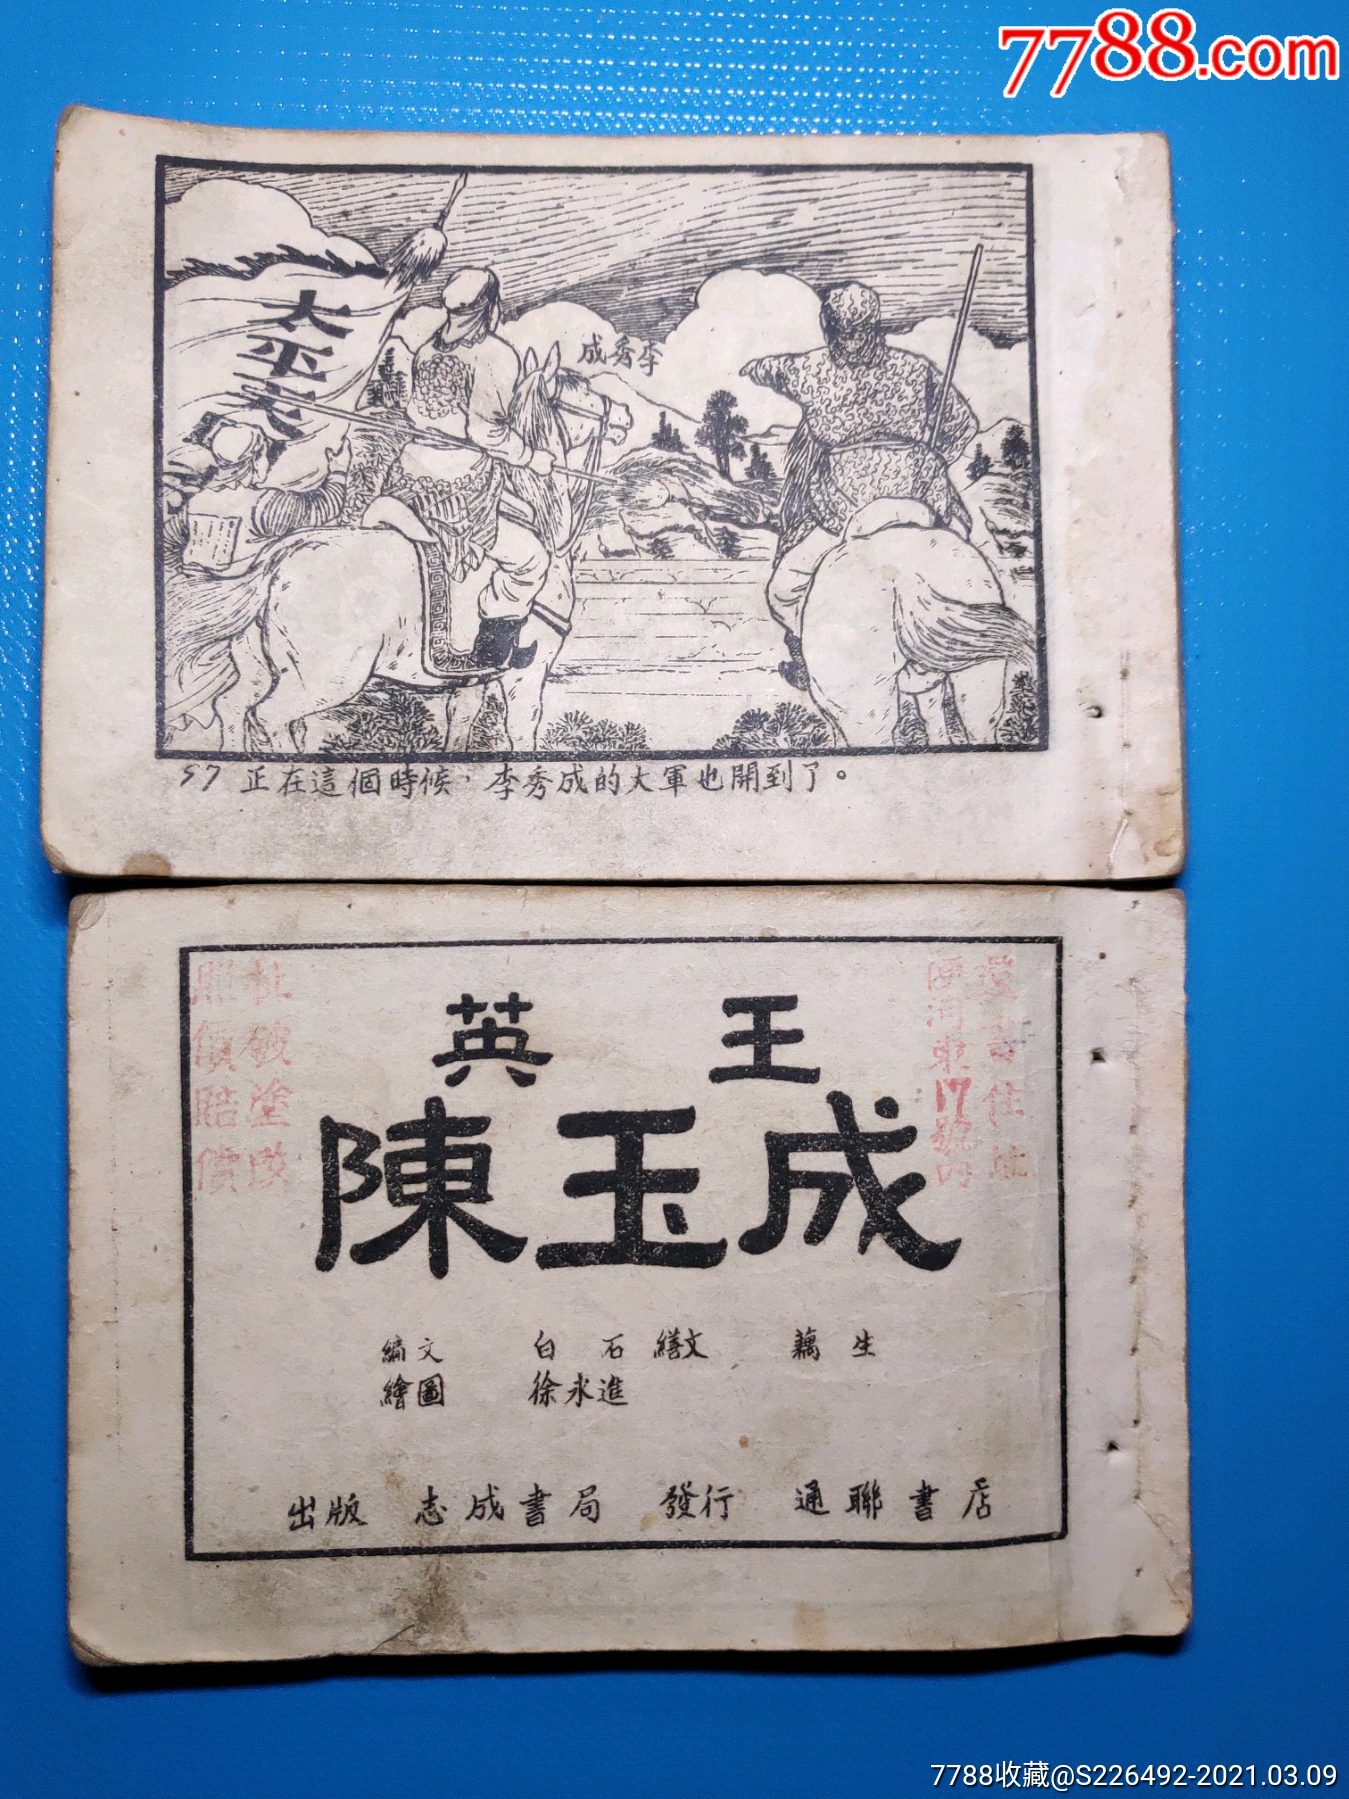 7788.com
太平天
李秀成
57 正在這個時候，李秀成的大軍也開到了。
英 王
陳玉成
編文 白石 繕文 藕生
繪圖 徐永進
出版 志成書局 發行 通聯書店
扯破塗改
照價賠償
住址
河東17號
7788收藏@S226492-2021.03.09